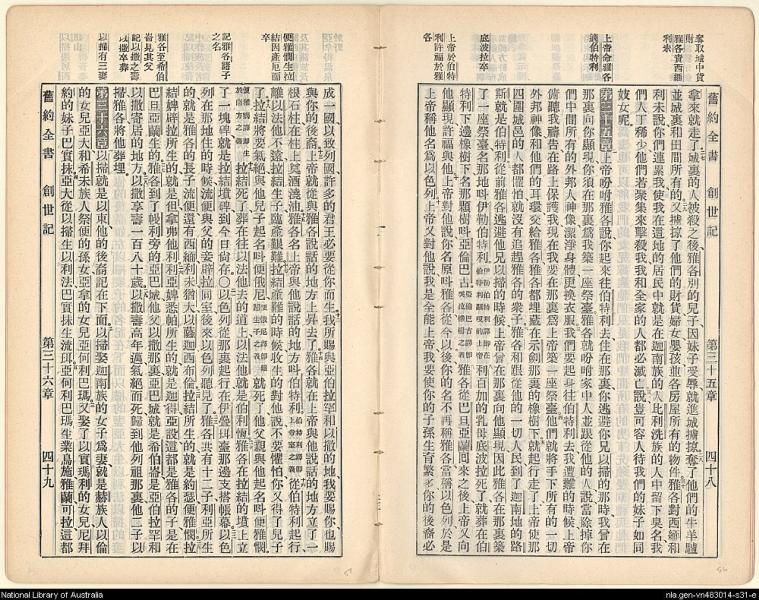 舊約全書 創世記 第三十五章 四十八
奪取城中貨財
雅各責西緬利未
上帝命雅各適伯特利
底波拉卒
上帝於伯特利許福於雅各
拿來就走了城裏的人被殺之後雅各別的兒子因妹子受辱就進城擄掠奪了他們的牛羊驢
並城裏和田間所有的又擄掠了他們的財貨婦女嬰孩並各房屋所有的物件雅各對西緬和
利未說你們連累我使我在這地的居民中就是在迦南族的人比利洗族的人中留下臭名我
們人丁稀少他們若聚集來擊殺我我和全家的人都必滅亡說豈可容人待我們的妹子如同
妓女呢
第三十五章 上帝吩咐雅各說你起來往伯特利去住在那裏你逃避你兄以掃的那時我曾在
那裏向你顯現你須在那裏爲我築一座祭臺雅各就吩咐家中人並跟從他的人說當除掉你
們中間所有的外邦人神像潔淨身體更換衣服我們要起身往伯特利去我遭難的時候上帝
俯聽我禱告在路上保護我現在我要在那裏爲上帝築一座祭臺他們就將手下所有的一切
外邦神像和他們的耳環交給雅各雅各都埋藏在示劍那裏的橡樹下就起行走了上帝使那
四圍城邑的人都懼怕就沒有追趕雅各的衆子雅各和跟從他的一切人民到了迦南地的路
斯就是伯特利從前雅各逃避他兄以掃的時候上帝曾在那裏向他顯現因此雅各在那裏築
了一座祭臺名那地叫伊勒伯特利 利百加的乳母底波拉死了就葬在伯
特利下邊橡樹下名那樹叫亞倫巴古 雅各從巴旦亞蘭回來之後上帝又向
他顯現許福與他上帝對他說你名原叫雅各從今以後你的名不再稱雅各當稱以色列於是
上帝稱他名爲以色列上帝又對他說我是全能上帝我要使你的子孫生育繁多你的後裔必
舊約全書 創世記 第三十六章 四十九
便雅憫生拉結因產厄而卒
記雅各諸子之名
雅各至希伯崙見其父
記以撒之壽以撒卒葬
以掃有三妻
成一國以致列國許多的君王必要從你而生我所賜與亞伯拉罕和以撒的地我要賜你也賜
與你的後裔上帝就從與雅各說話的地方上昇去了雅各就在上帝與他說話的地方立了一
根石柱在柱上奠酒澆油雅各名上帝與他說話的地方叫伯特利 他們從伯特利起行
離以法他不遠拉結生子臨產艱難拉結產難的時候收生的對他說不要懼怕你又得了兒子
了拉結將要氣絕與他兒子起名叫便俄尼 就死了他父親與他起名叫便雅憫
拉結死了葬在往以法他去的道上以法他就是伯利恆雅各在拉結的墳上立
了一塊碑就是拉結墳碑到今日尙存〇以色列從那裏起行在伊曼得臺那邊支搭帳幕以色
列在那地住的時候流便與父的妾辟拉同室後來以色列聽見了雅各共有十二子利亞所生
的就是雅各的長子流便還有西緬利未猶大以薩迦西布倫拉結所生的就是約瑟便雅憫拉
結婢辟拉所生的就是但拿弗他利利亞婢悉帕所生的就是迦得亞設這都是雅各的子是在
巴旦亞蘭生的雅各到了幔利旁的亞巴城他父以撒那裏亞巴城就是希伯崙是亞伯拉罕和
以撒寄居的地方以撒享壽一百八十歲以撒壽高年邁氣絕而死歸到他列祖那裏他二子以
掃雅各將他葬埋
第三十六章 以掃就是以東他的後裔記在下面以掃娶迦南族的女子爲妻就是赫族人以倫
的女兒亞大和希未族人祭便的孫女亞拿的女兒亞何利巴瑪又娶了以實瑪利的女兒尼拜
約的妹子巴實抹亞大從以掃生以利法巴實抹生流珥亞何利巴瑪生業烏施雅蘭可拉這都
National Library of Australia
nla.gen-vn483014-s31-e